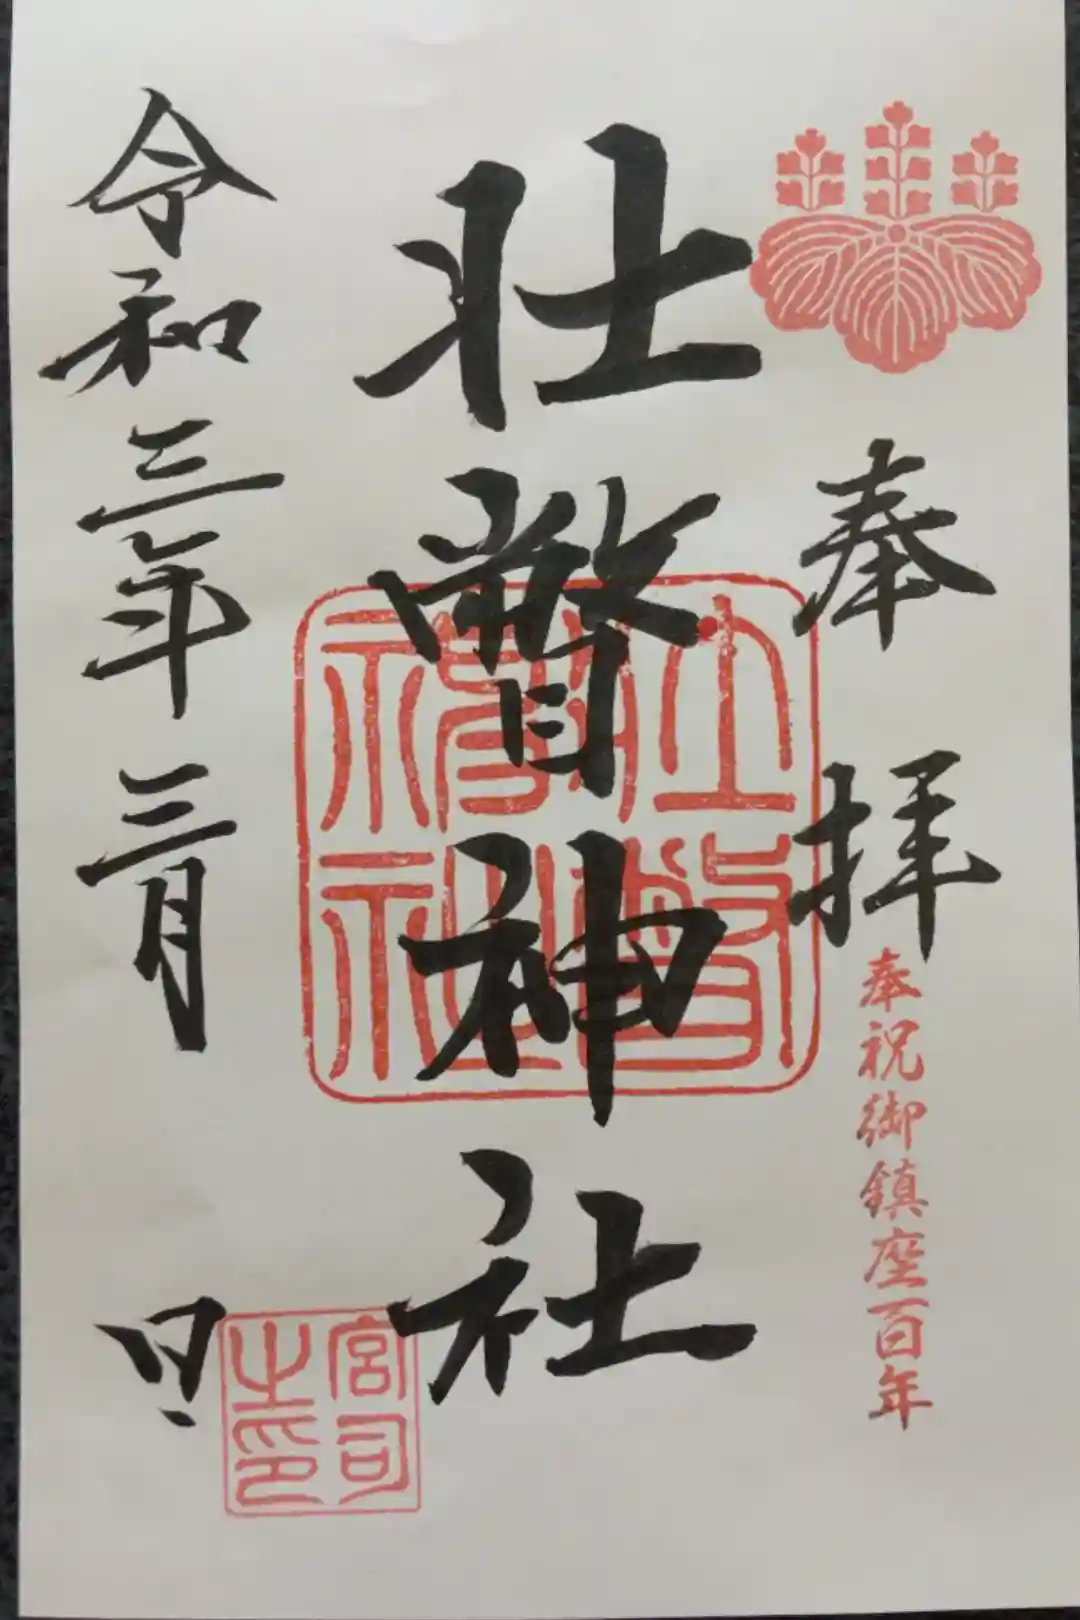 奉拝
奉祝御鎮座百年
壮瞥神社
令和三年三月　日
宮司之印